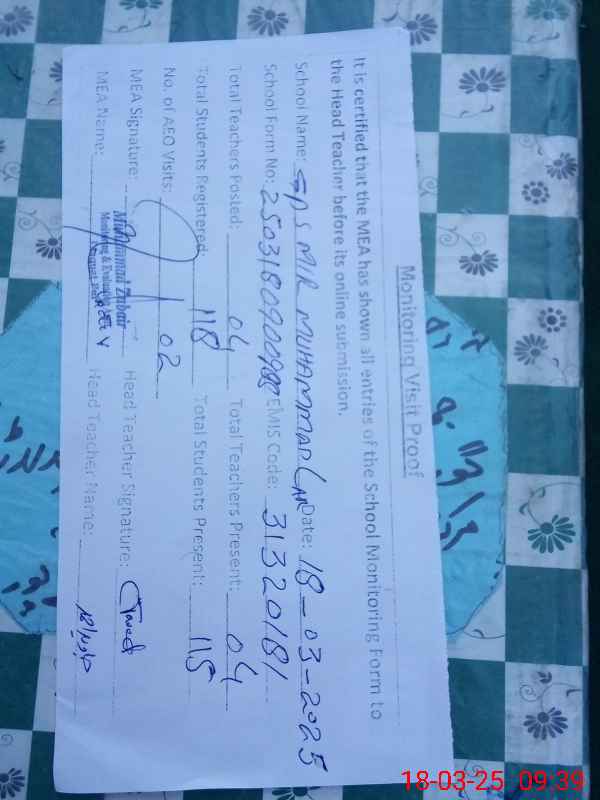 Monitoring Visit Proof
It is certified that the MEA has shown all entries of the School Monitoring Form to
the Head Teacher before its online submission.
School Name: GPS MIR MUHAMMAD LAR Date: 18-03-2025
School Form No: EMIS Code: 31320181
Total Teachers Posted: 04 Total Teachers Present: 04
Total Students Registered: 118 Total Students Present: 115
No. of AEO Visits: 02
MEA Signature: Head Teacher Signature: Javed
Muhammad Zubair
Monitoring & Evaluation
MEA Name: Head Teacher Name:
18-03-25 09:39